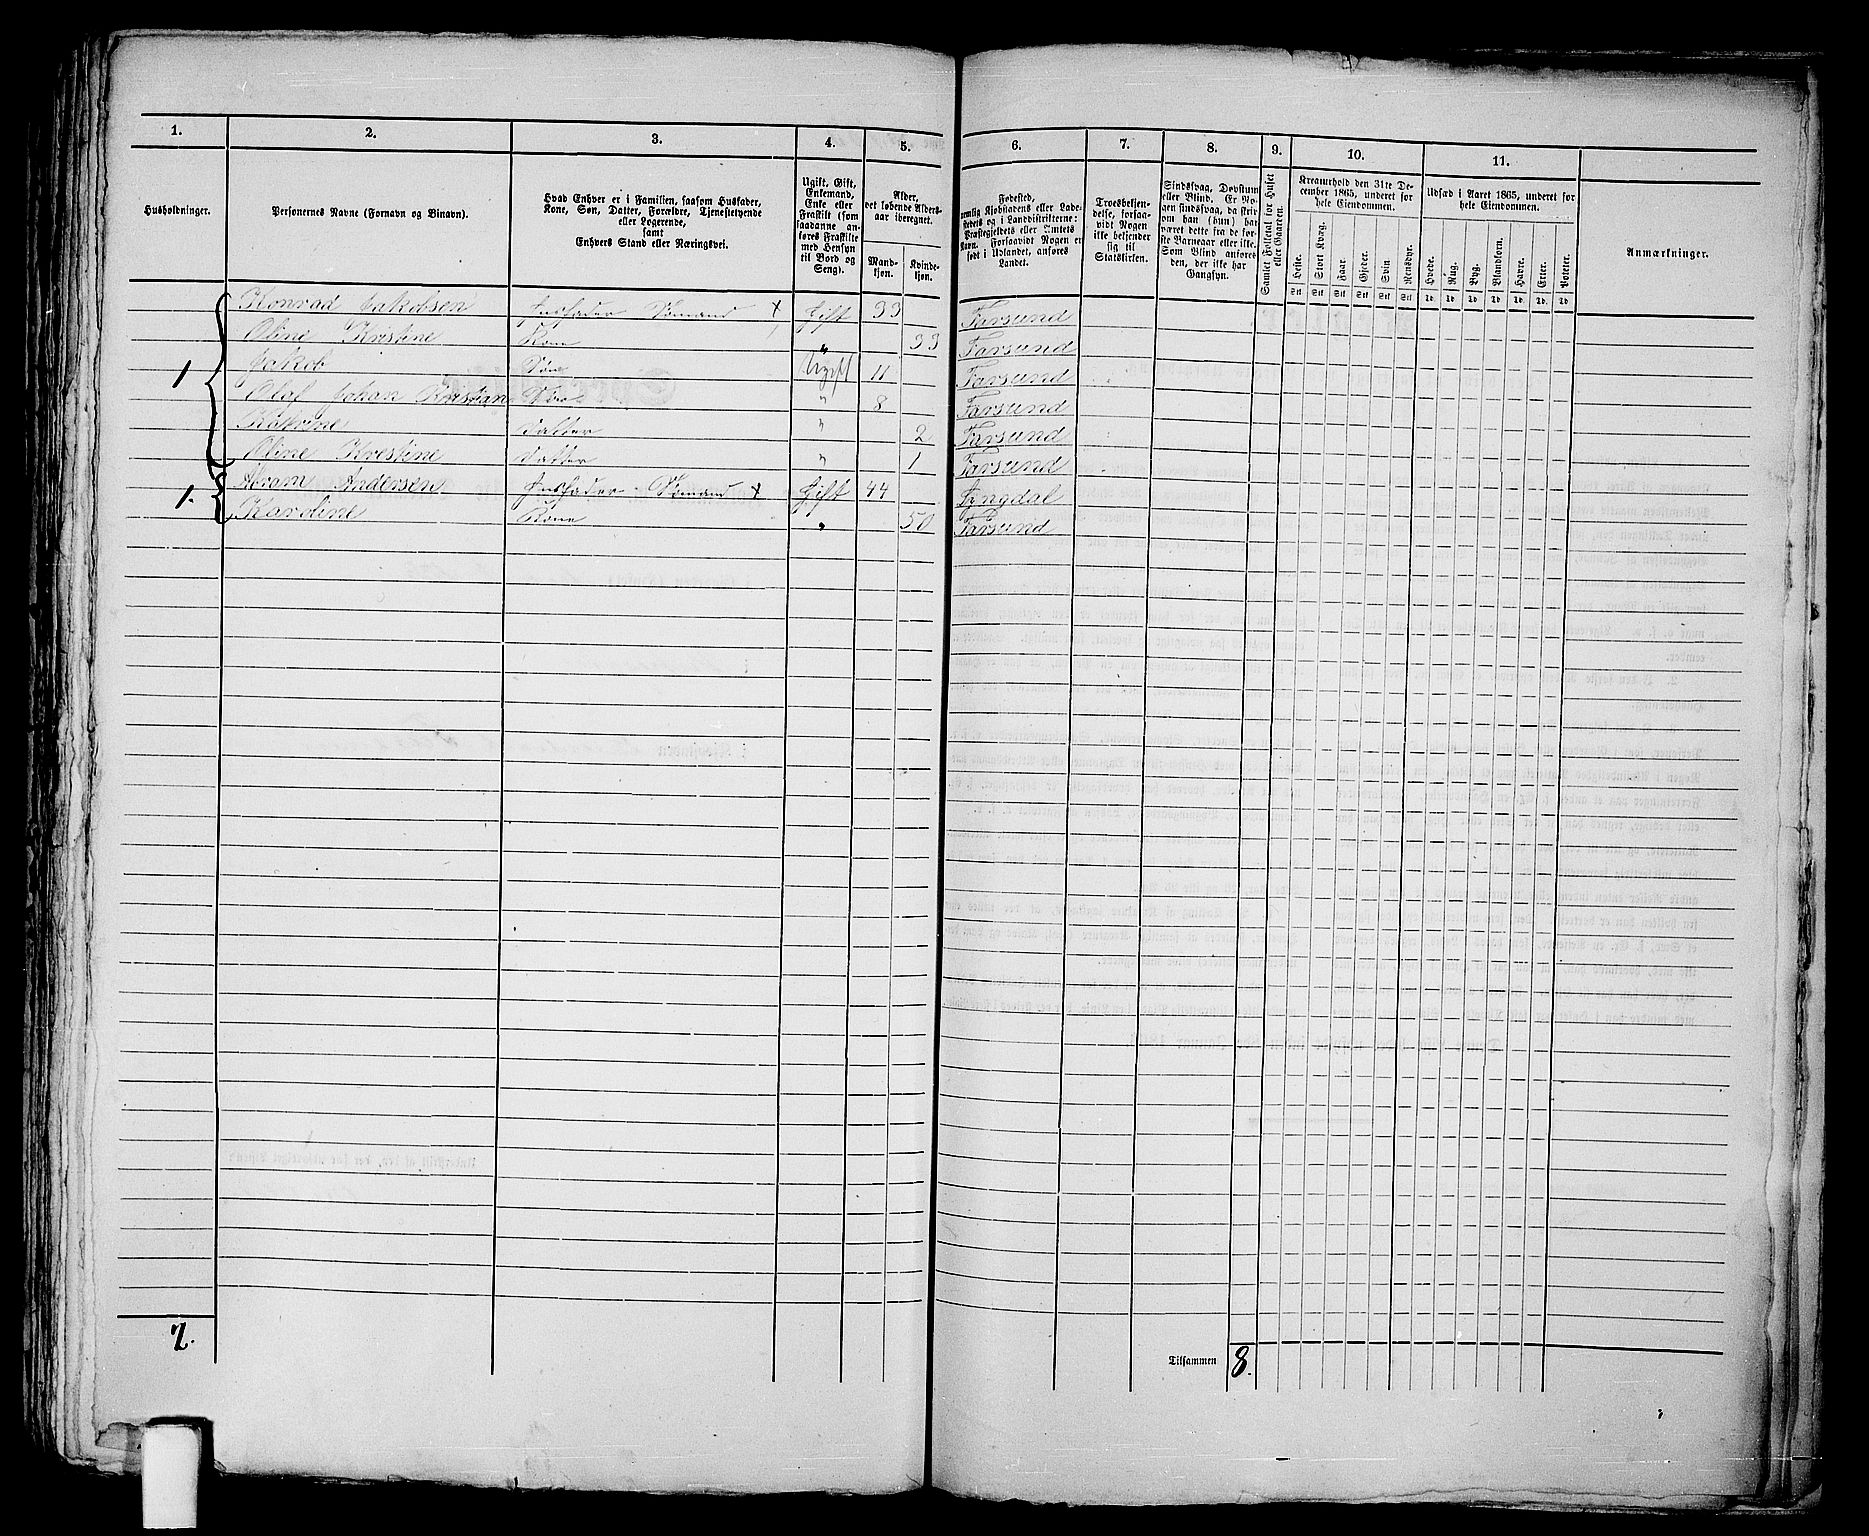 1. 2. 3. 4. 5. 6. 7. 8. 9. 10. 11.
Husholdninger.
Personernes Navne (Fornavn og Binavn).
Hvad Enhver er i Familien, saasom Husfader,
Kone, Søn, Datter, Forældre, Tjenestetyende
eller Logerende,
samt
Enhvers Stand eller Næringsvei.
Ugift, Gift,
Enkemand,
Enke eller
Fraskilt (som
saadanne an-
føres Fraskilte
med Hensyn
til Bord og
Seng).
Alder,
det løbende Alders-
aar iberegnet.
Mand-
kjøn.
Kvinde-
kjøn.
Fødested,
nemlig Kjøbstadens eller Lade-
stedets og i Landdistrikterne:
Præstegjeldets eller Amtets
Navn. Forsaavidt Nogen er
født i Udlandet, anføres
Landet.
Troesbekjen-
delse, forsaa-
vidt Nogen
ikke bekjender
sig til
Statskirken.
Sindssvag, Døvstum
eller Blind. Er No-
gen sindssvag, da skriv
om han (hun) har
været dette fra de før-
ste Barneaar eller ikke.
Som Blind anføres
den, der ikke har
Gangsyn.
Samlet Folketal for Huset
eller Gaarden.
Kreaturhold den 31te De-
cember 1865, underet for
hele Eiendommen.
Heste. Stort Kvæg. Faar. Gjeder. Svin. Rensdyr.
Stk Stk Stk Stk Stk Stk
Udsæd i Aaret 1865, underet for
hele Eiendommen.
Hvede. Rug. Byg. Blandkorn. Havre. Erter. Poteter.
Td. Td. Td. Td. Td. Td. Td
Anmærkninger.
Konrad Jakobsen Husfader Sømand x Gift 33 Farsund
Oline Kristine Kone " 33 Farsund
1 Jakob Søn Ugift 11 Farsund
Olaf Johan Kristian Søn " 8 Farsund
Katrine Datter " 2 Farsund
Oline Kristine Datter " 1 Farsund
1. Abram Andersen Husfader Sømand x Gift 44 Lyngdal
Karoline Kone " 50 Farsund
2.
Tilsammen 8.